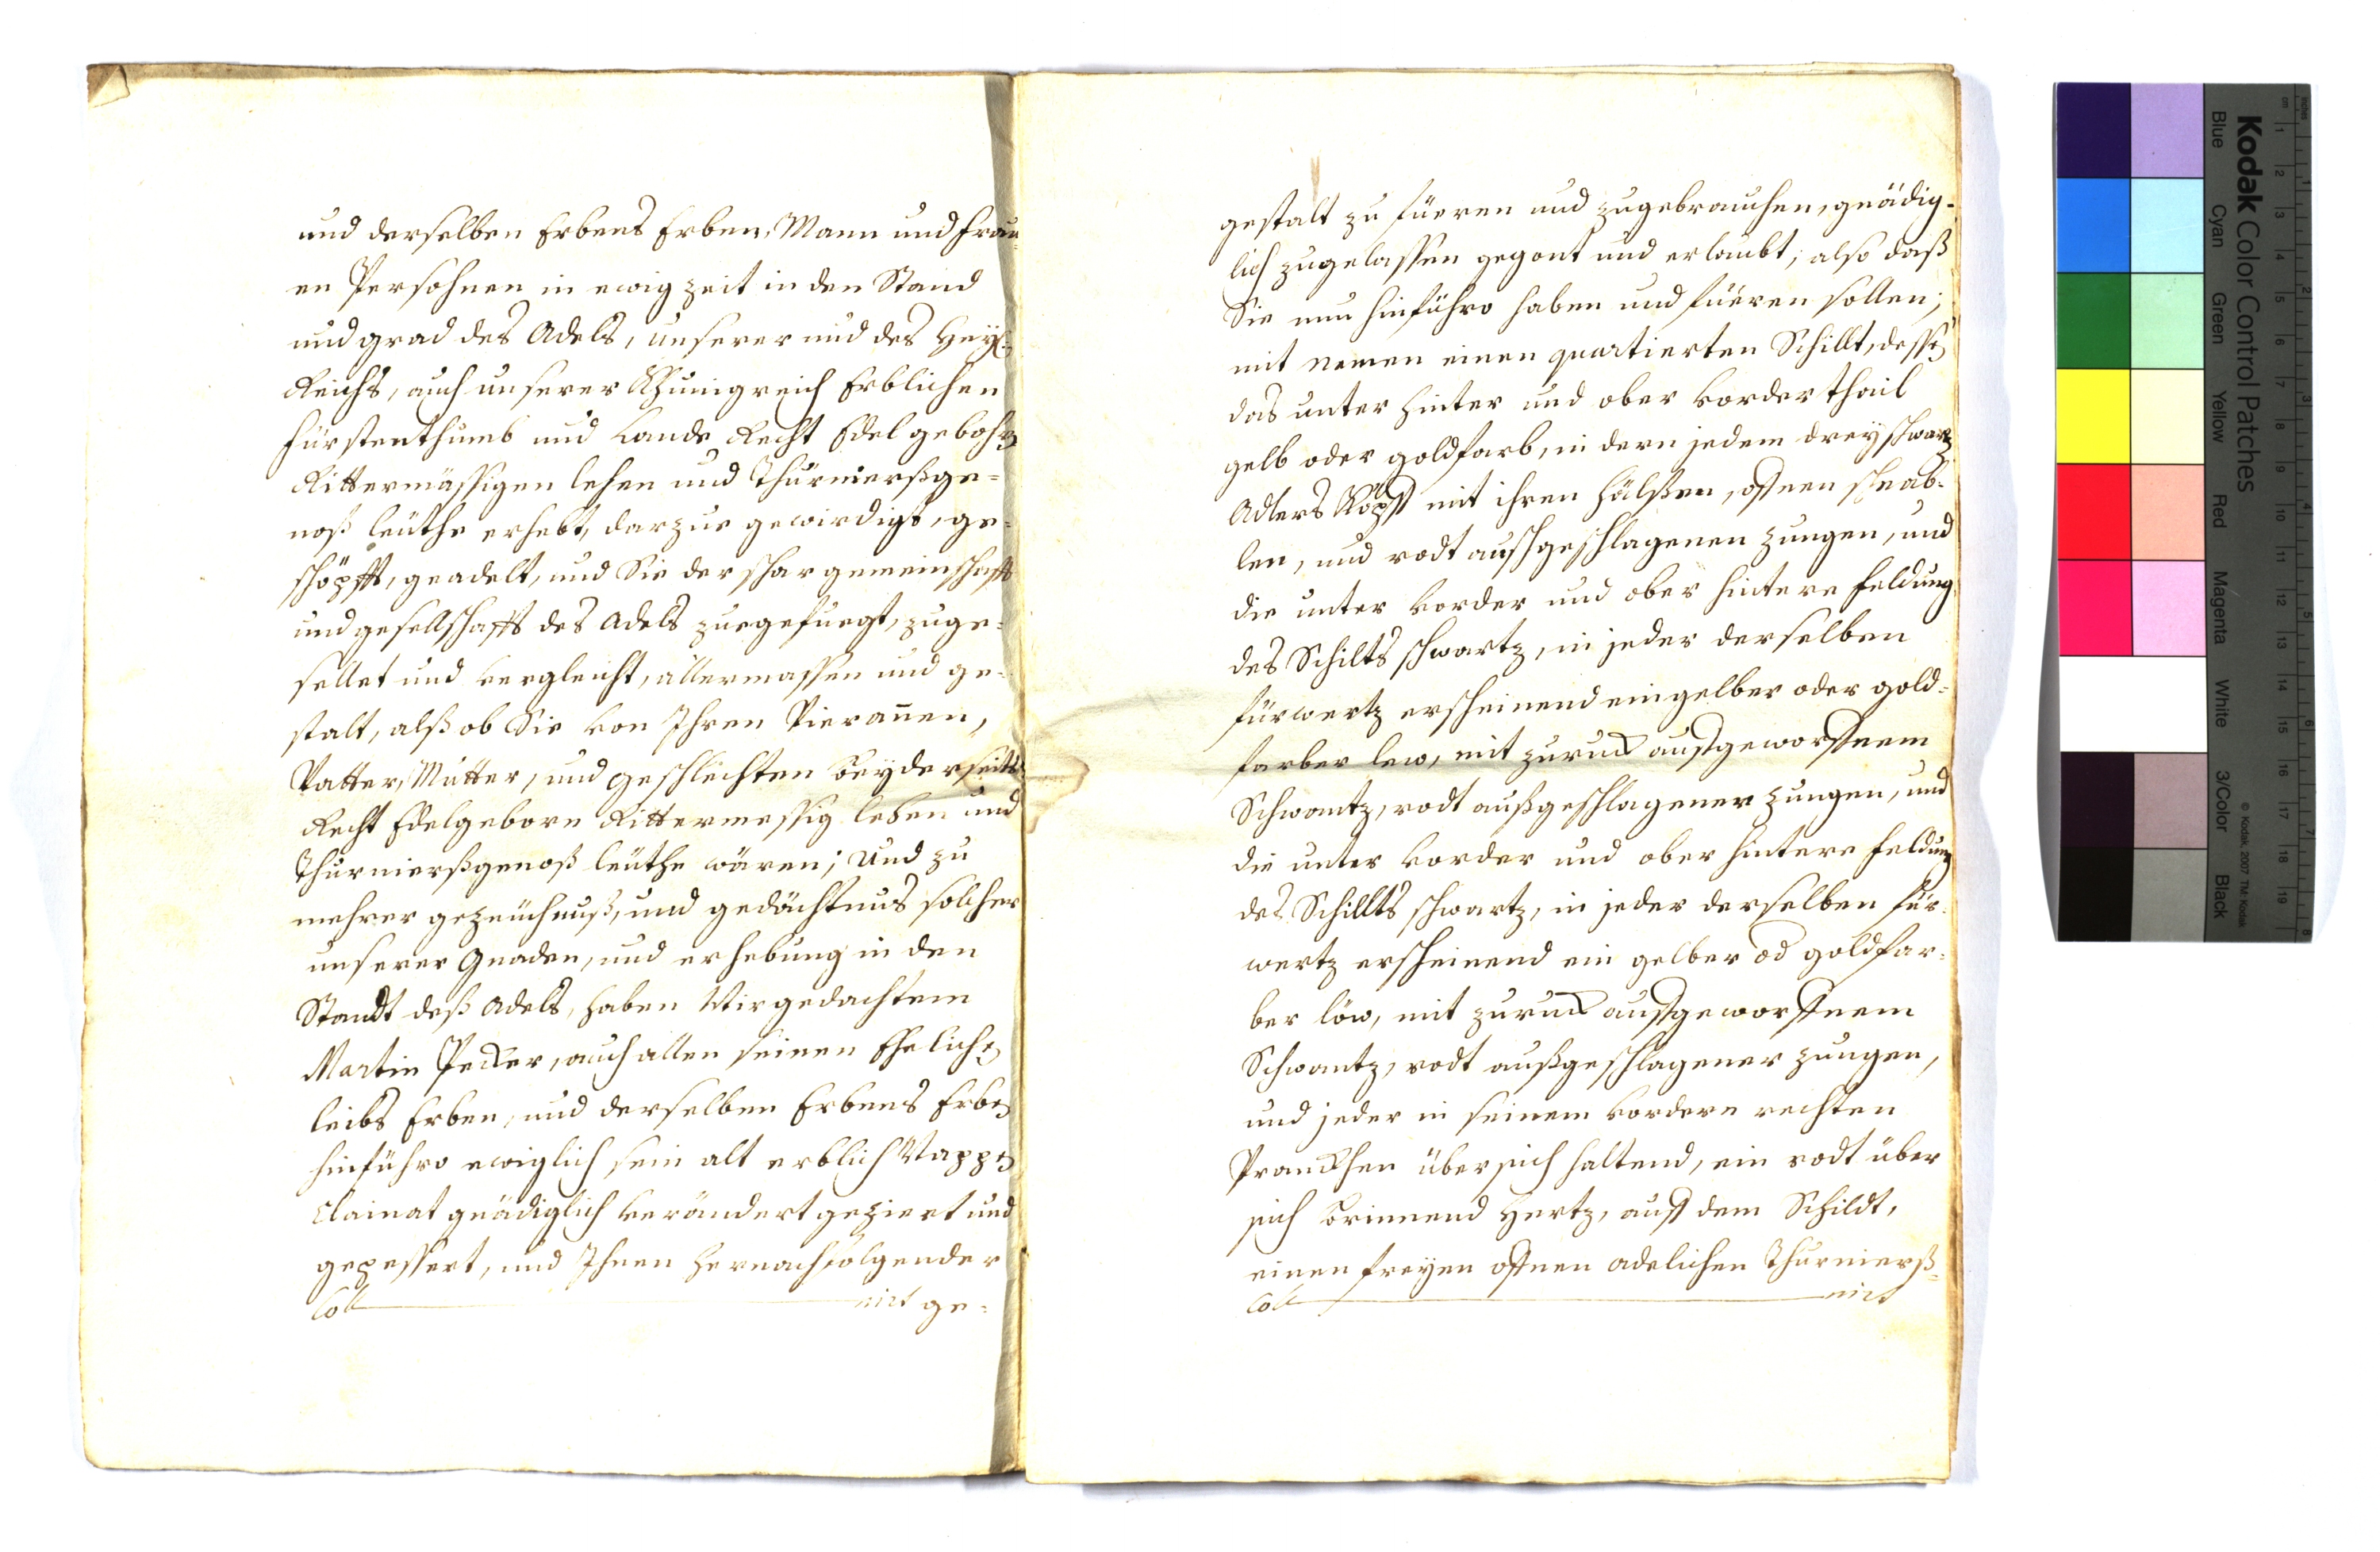 und derselben Erbens Erben, Mann und Frau-
en Persohnen in ewig zeit in den Stand
und grad des Adels, unserer und des Heyl:
Reichs, auch unserer Khünigreich Erblichen
Fürstenthumb und Lande Recht Edel gebohrn
Rittermässigen lehen und Thurnierßge-
noß leüthe erhebt, darzue gewirdigt, ge-
schöpfft, geadelt, und Sie der schar gemeinschafft
und gesellschafft des Adels zuegefuegt, zuge-
sellet und vergleicht, allermassen und ge-
stalt, alß ob Sie von Ihren Vierannen,
Vatter, Mutter, und geschlechten beyderseits
Recht Edelgeborn Rittermessig leben und
Thurnierßgenoß leüthe wären; Und zu
mehrer gezeüchnuß, und gedächtnus solcher
unserer Gnaden, und erhebung in den
Standt deß Adels, haben Wir gedachtem
Martin Pecker, auch allen seinen Ehelichen
leibs Erben, und derselben Erbens Erben
hinführo ewiglich sein alt erblich Wappen
Clainat gnädiglich verändert geziert und
gepessert, und Ihnen hernachfolgender
Coll nirt ge-
gestalt zu füeren und zugebrauchen, gnädig-
lich zugelassen gegont und erlaubt; also daß
Sie nun hinführo haben und füeren sollen;
mit namen einen quartierten Schillt, dessen
das unter hinter und ober vorder thail
gelb oder goldfarb, in dern jedem drey schwartz
Adlers Köpff mit ihren hälßen, offnen schnäb-
len, und rodt aussgeschlagenen zungen, und
die unter vorder und ober hintere feldung
des Schilts schwartz, in jeder derselben
fürwertz erscheinend ein gelber oder gold-
farber lew, mit zuruck aussgeworffnem
Schwantz, rodt außgeschlagener zungen, und
die unter vorder und ober hintere feldung
des Schillts schwartz, in jeder derselben für-
wertz erscheinend ein gelber od goldfar-
ber löw, mit zuruck aussgeworffnem
Schwantz, rodt außgeschlagener zungen,
und jeder in seinem vordern rechten
Pranckhen über sich haltend, ein rodt über
sich brinnend Hertz, auff dem Schildt,
einen freyen offnen adelichen Thurnierß-
Coll nirt
Kodak Color Control Patches
Blue Cyan Green Yellow Red Magenta White 3/Color Black
© Kodak, 2007 TM: Kodak
cm 1 2 3 4 5 6 7 8 9 10 11 12 13 14 15 16 17 18 19
inches 1 2 3 4 5 6 7 8